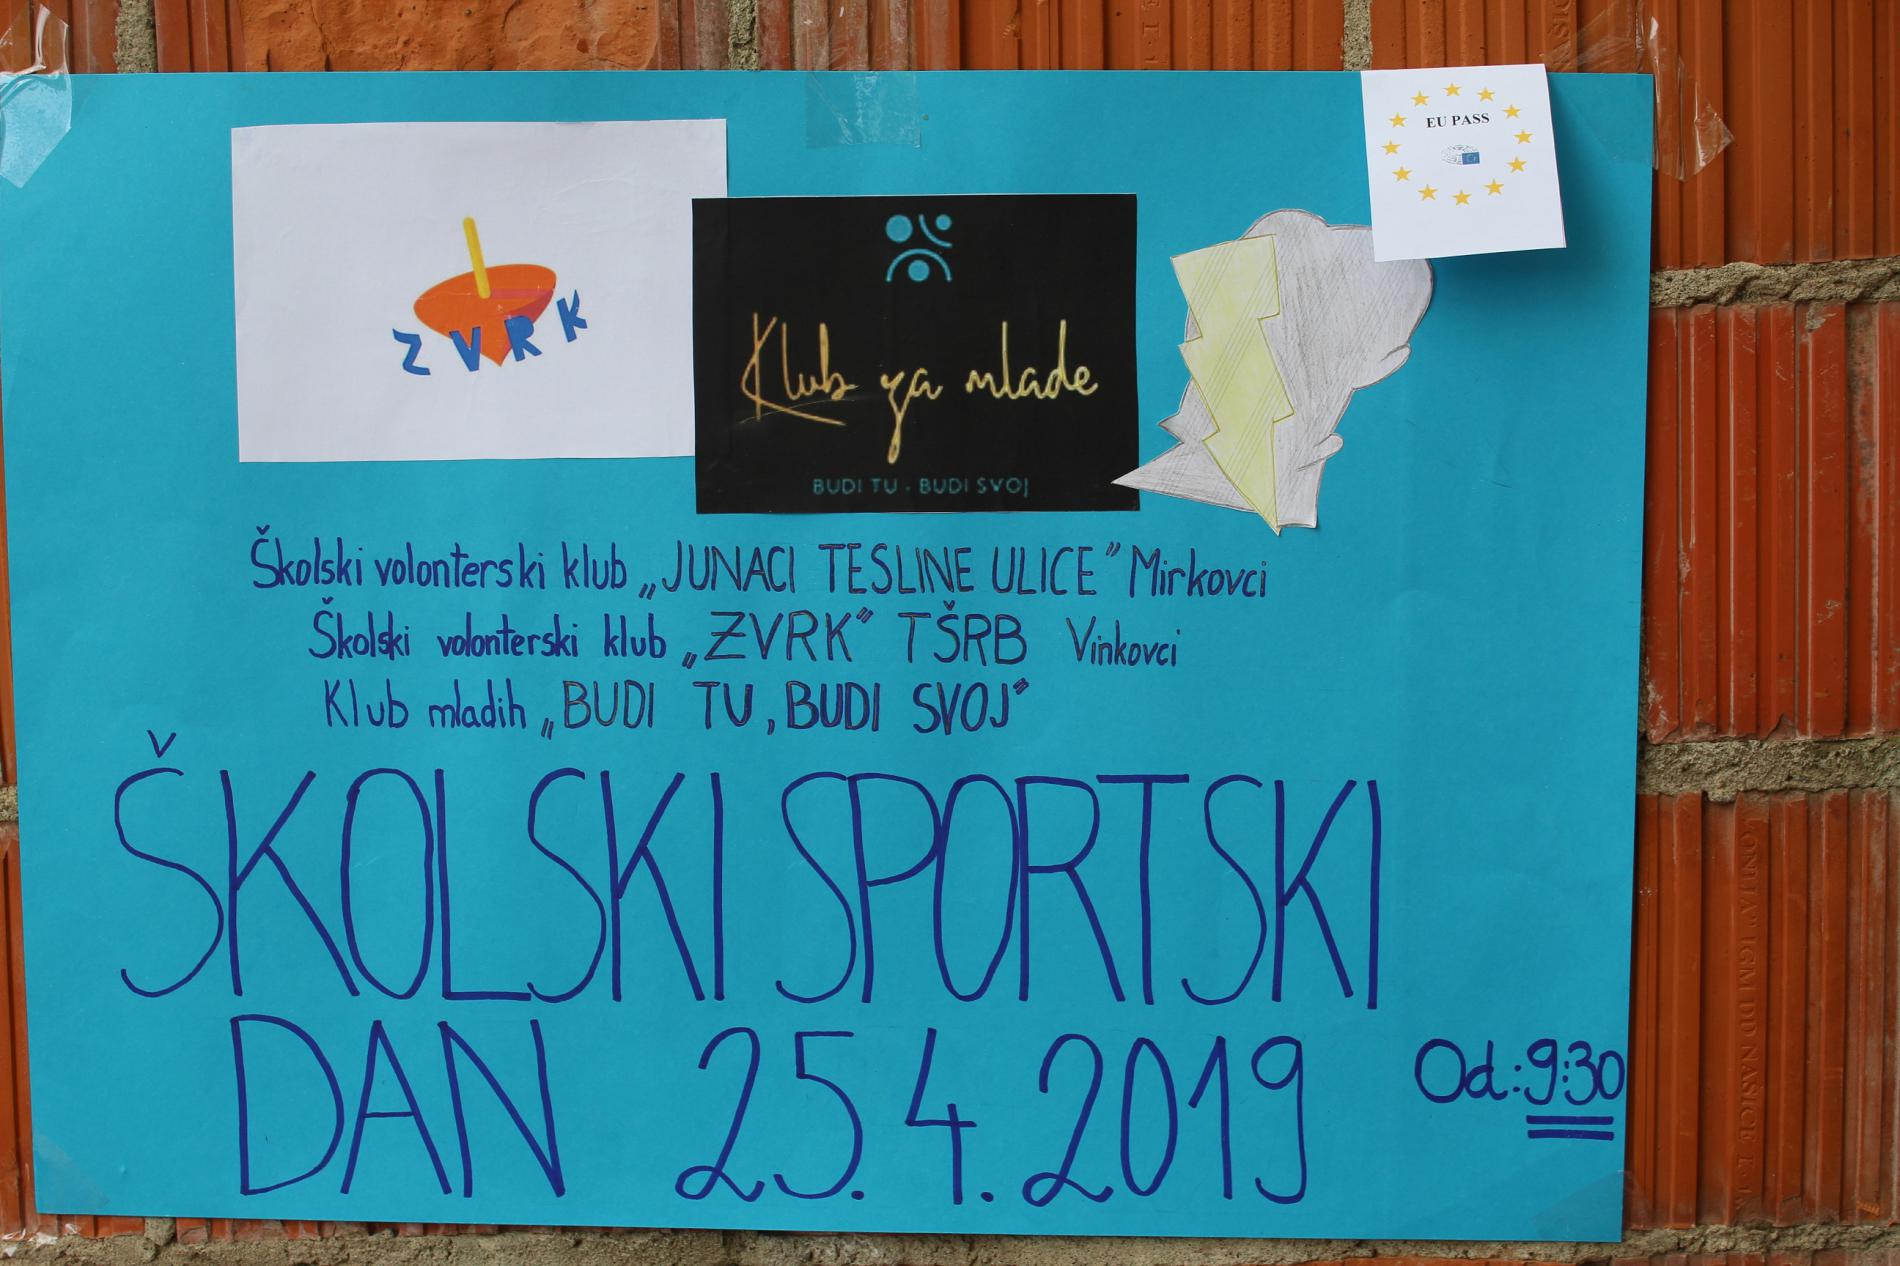 EU PASS
ZVRK
Klub za mlade
BUDI TU . BUDI SVOJ
Školski volonterski klub „JUNACI TESLINE ULICE” Mirkovci
Školski volonterski klub „ZVRK” TŠRB Vinkovci
Klub mladih „BUDI TU, BUDI SVOJ”
ŠKOLSKI SPORTSKI
DAN 25.4.2019
Od:9:30